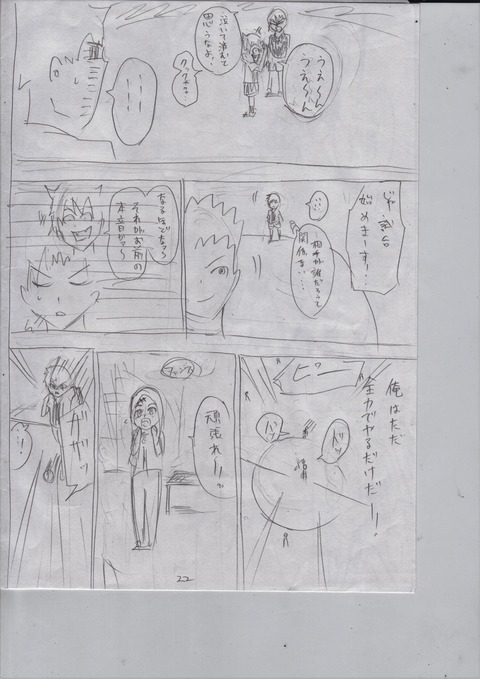 うえ〜ん
うえ〜ん
泣いて済むと
思うなよ。
クックックッ
・・・・
・・・・
じゃ、試合
始めまーす!!
・・・
相手が誰だろうって
関係ない・・・
なるほどなァ〜
それがお前の
本音かァ〜
俺はただ
全力でやるだけだー!
ピーッ
頑張れー!!
ガガッ
・・!
22